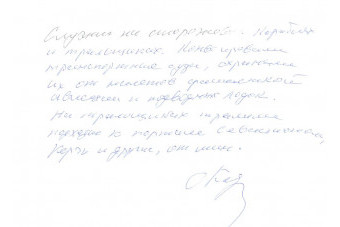 Служил на сторожев. Кораблях
и тральщиках. Конвоировали
транспортные суда, охраняли
их от налетов фашистской
авиации и подводных лодок.
На тральщиках тралили
подходы к портам Севастополь,
Керчь и другие, от мин.